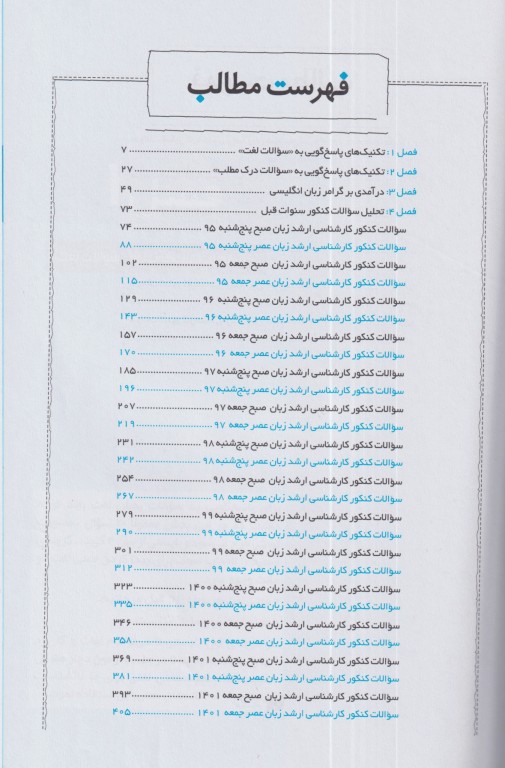 فهرست مطالب
فصل ۱: تکنیک‌های پاسخ‌گویی به «سؤالات لغت» ........ ۷
فصل ۲: تکنیک‌های پاسخ‌گویی به «سؤالات درک مطلب» ........ ۲۷
فصل ۳: درآمدی بر گرامر زبان انگلیسی ........ ۴۹
فصل ۴: تحلیل سؤالات کنکور سنوات قبل ........ ۷۳
سؤالات کنکور کارشناسی ارشد زبان صبح پنج‌شنبه ۹۵ ........ ۷۴
سؤالات کنکور کارشناسی ارشد زبان عصر پنج‌شنبه ۹۵ ........ ۸۸
سؤالات کنکور کارشناسی ارشد زبان صبح جمعه ۹۵ ........ ۱۰۲
سؤالات کنکور کارشناسی ارشد زبان عصر جمعه ۹۵ ........ ۱۱۵
سؤالات کنکور کارشناسی ارشد زبان صبح پنج‌شنبه ۹۶ ........ ۱۲۹
سؤالات کنکور کارشناسی ارشد زبان عصر پنج‌شنبه ۹۶ ........ ۱۴۳
سؤالات کنکور کارشناسی ارشد زبان صبح جمعه ۹۶ ........ ۱۵۷
سؤالات کنکور کارشناسی ارشد زبان عصر جمعه ۹۶ ........ ۱۷۰
سؤالات کنکور کارشناسی ارشد زبان صبح پنج‌شنبه ۹۷ ........ ۱۸۵
سؤالات کنکور کارشناسی ارشد زبان عصر پنج‌شنبه ۹۷ ........ ۱۹۶
سؤالات کنکور کارشناسی ارشد زبان صبح جمعه ۹۷ ........ ۲۰۷
سؤالات کنکور کارشناسی ارشد زبان عصر جمعه ۹۷ ........ ۲۱۹
سؤالات کنکور کارشناسی ارشد زبان صبح پنج‌شنبه ۹۸ ........ ۲۳۱
سؤالات کنکور کارشناسی ارشد زبان عصر پنج‌شنبه ۹۸ ........ ۲۴۲
سؤالات کنکور کارشناسی ارشد زبان صبح جمعه ۹۸ ........ ۲۵۴
سؤالات کنکور کارشناسی ارشد زبان عصر جمعه ۹۸ ........ ۲۶۷
سؤالات کنکور کارشناسی ارشد زبان صبح پنج‌شنبه ۹۹ ........ ۲۷۹
سؤالات کنکور کارشناسی ارشد زبان عصر پنج‌شنبه ۹۹ ........ ۲۹۰
سؤالات کنکور کارشناسی ارشد زبان صبح جمعه ۹۹ ........ ۳۰۱
سؤالات کنکور کارشناسی ارشد زبان عصر جمعه ۹۹ ........ ۳۱۲
سؤالات کنکور کارشناسی ارشد زبان صبح پنج‌شنبه ۱۴۰۰ ........ ۳۲۳
سؤالات کنکور کارشناسی ارشد زبان عصر پنج‌شنبه ۱۴۰۰ ........ ۳۳۵
سؤالات کنکور کارشناسی ارشد زبان صبح جمعه ۱۴۰۰ ........ ۳۴۶
سؤالات کنکور کارشناسی ارشد زبان عصر جمعه ۱۴۰۰ ........ ۳۵۸
سؤالات کنکور کارشناسی ارشد زبان صبح پنج‌شنبه ۱۴۰۱ ........ ۳۶۹
سؤالات کنکور کارشناسی ارشد زبان عصر پنج‌شنبه ۱۴۰۱ ........ ۳۸۱
سؤالات کنکور کارشناسی ارشد زبان صبح جمعه ۱۴۰۱ ........ ۳۹۳
سؤالات کنکور کارشناسی ارشد زبان عصر جمعه ۱۴۰۱ ........ ۴۰۵